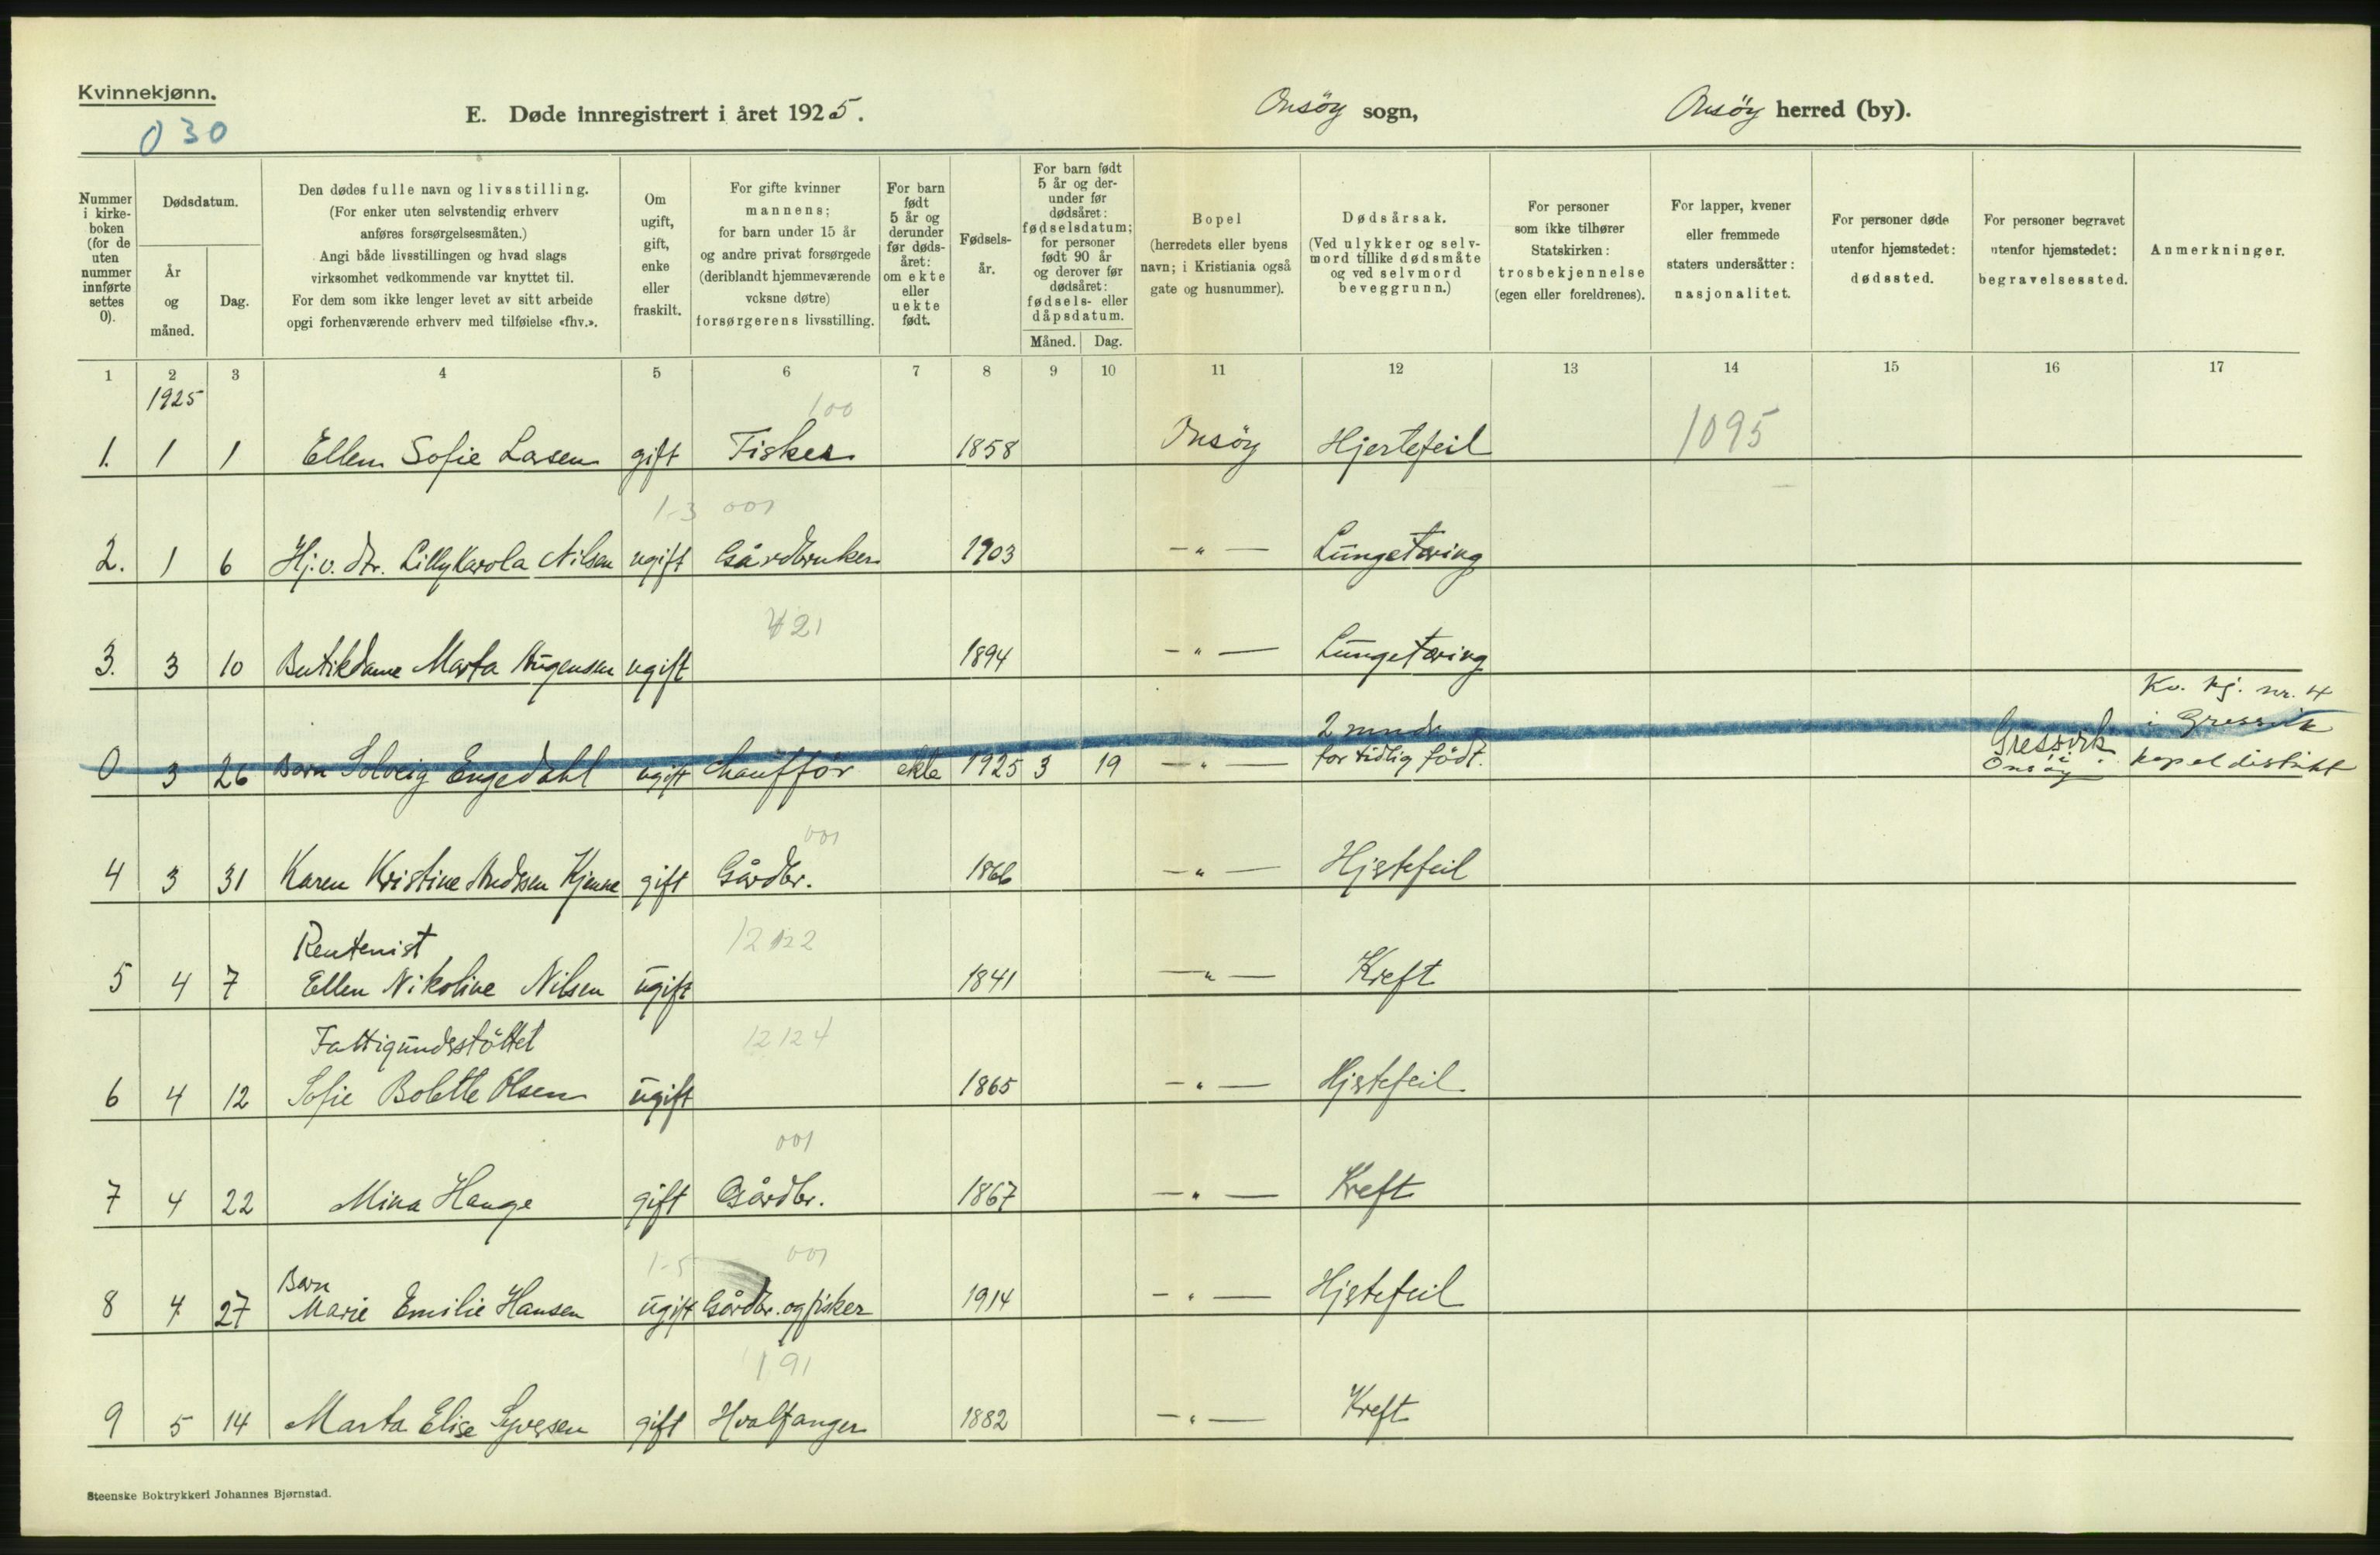 Kvinnekjønn.
030
E. Døde innregistrert i året 1925.
Onsöy sogn,
Onsöy herred (by).
Nummer i kirkeboken (for de uten nummer innførte settes 0).
Dødsdatum.
År og måned.
Dag.
Den dødes fulle navn og livsstilling.
(For enker uten selvstendig erhverv
anføres forsørgelsesmåten.)
Angi både livsstillingen og hvad slags
virksomhet vedkommende var knyttet til.
For dem som ikke lenger levet av sitt arbeide
opgi forhenværende erhverv med tilføielse «fhv.».
Om ugift, gift, enke eller fraskilt.
For gifte kvinner
mannens;
for barn under 15 år
og andre privat forsørgede
(deriblandt hjemmeværende
voksne døtre)
forsørgerens livsstilling.
For barn født 5 år og derunder før dødsåret: om ekte eller uekte født.
Fødselsår.
For barn født 5 år og derunder før dødsåret: fødselsdatum; for personer født 90 år og derover før dødsåret: fødsels- eller dåpsdatum.
Måned. Dag.
Bopel
(herredets eller byens
navn; i Kristiania også
gate og husnummer).
Dødsårsak.
(Ved ulykker og selv-
mord tillike dødsmåte
og ved selvmord
beveggrunn.)
For personer
som ikke tilhører
Statskirken:
trosbekjennelse
(egen eller foreldrenes).
For lapper, kvener
eller fremmede
staters undersåtter:
nasjonalitet.
For personer døde
utenfor hjemstedet:
dødssted.
For personer begravet
utenfor hjemstedet:
begravelsessted.
Anmerkninger.
1 2 3 4 5 6 7 8 9 10 11 12 13 14 15 16 17
1925
100
1. 1 1 Ellen Sofie Larsen gift Fisker 1858 Onsöy Hjertefeil 1095
1-3 001
2. 1 6 Hj.v. dtr. Lilly Karola Nilsen ugift Gårdbruker 1903 -"- Lungetæring
421
3. 3 10 Butikdame Marta ugift 1894 -"- Lungetæring
Kv. kj. nr. 4
2 mndr. i Gressvik
0 3 26 Barn Solveig Engedahl ugift Chauffør ekte 1925 3 19 -"- for tidlig födt. Gressvik i Onsöy kapeldistrikt
001
4 3 31 Karen Kristine Kjenne gift Gårdbr. 1866 -"- Hjertefeil
Rentenist 12122
5 4 7 Ellen Nikoline Nilsen ugift 1841 -"- Kreft
Fattigundsstöttet 12124
6 4 12 Sofie Bolette Olsen ugift 1865 -"- Hjertefeil
001
7 4 22 Mina Hauge gift Gårdbr. 1867 -"- Kreft
Barn 1-5 001
8 4 27 Marie Emilie Hansen ugift Gårdbr. og fisker 1914 -"- Hjertefeil
191
9 5 14 Marta Elise Syversen gift Hvalfanger 1882 -"- Kreft
Steenske Boktrykkeri Johannes Bjørnstad.